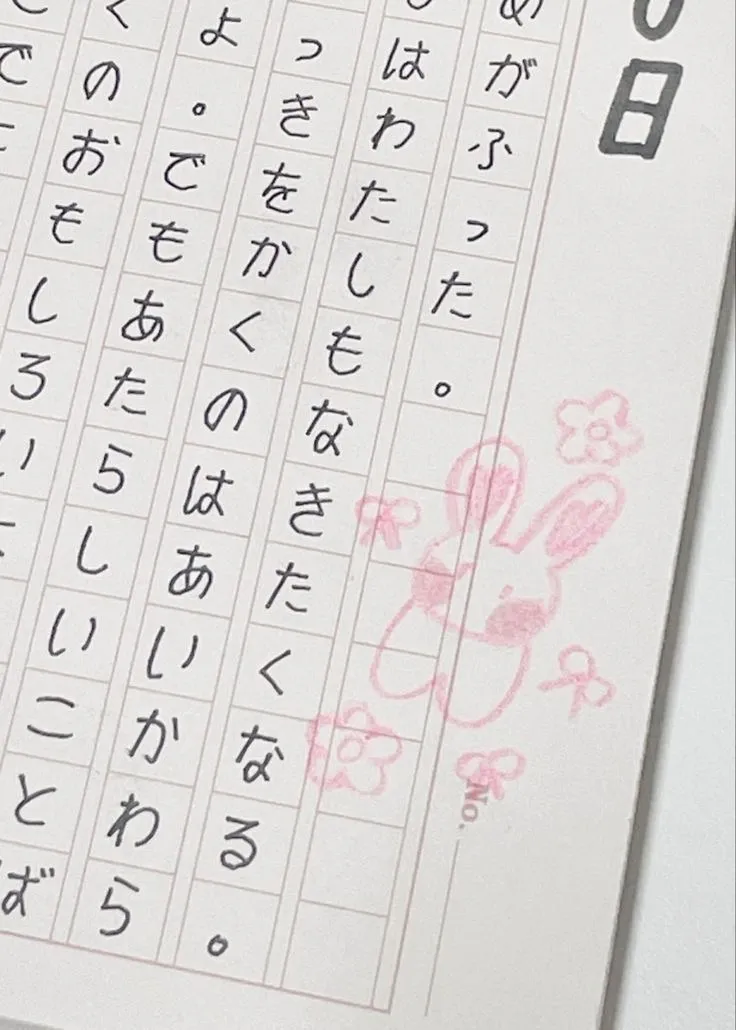 日
めがふった。
はわたしもなきたくなる。
っきをかくのはあいかわら
よ。でもあたらしいことば
くのおもしろい
で
No.